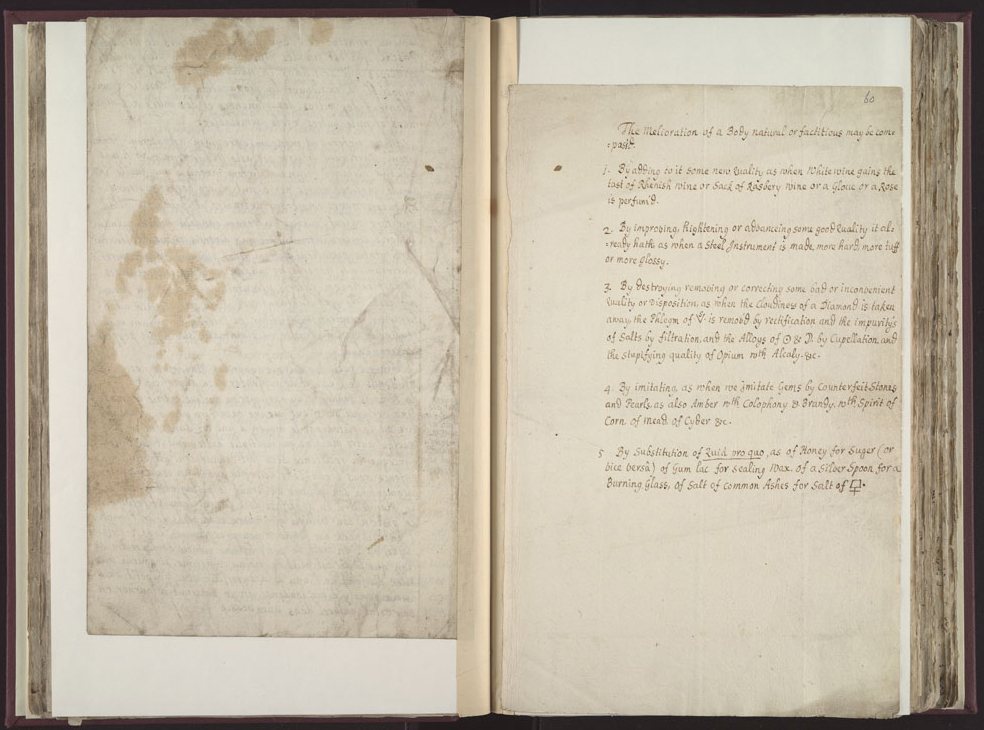 60
The Melioration of a Body natural or factitious may be com=
=pasd.
1. By adding to it some new Quality as when White wine gains the
tast of Rhenish wine or Sack of Rasbery wine or a Glove or a Rose
is perfum'd.
2. By improving, hightening or advanceing some good Quality it al=
=ready hath as when a Steel Instrument is made more hard, more tuff
or more glossy.
3. By destroying removing or correcting some bad or inconvenient
Quality or Disposition, as when the Cloudiness of a Diamond is taken
away, the Phlegm of is remov'd by rectification and the impuritys
of Salts by filtration, and the Alloys of ☉ & ☽ by Cupellation, and
the stupifying quality of Opium wth Alcaly. &c.
4. By imitating, as when we imitate Gems by Counterfeit Stones
and Pearls, as also Amber wth Colophony & Brandy, wth Spirit of
Corn of Mead of Cyder &c.
5 By Substitution of Quid pro quo, as of Honey for Suger (or
vice versâ) of Gum lac for Sealing Wax. of a Silver Spoon for a
Burning Glass, of Salt of Common Ashes for Salt of